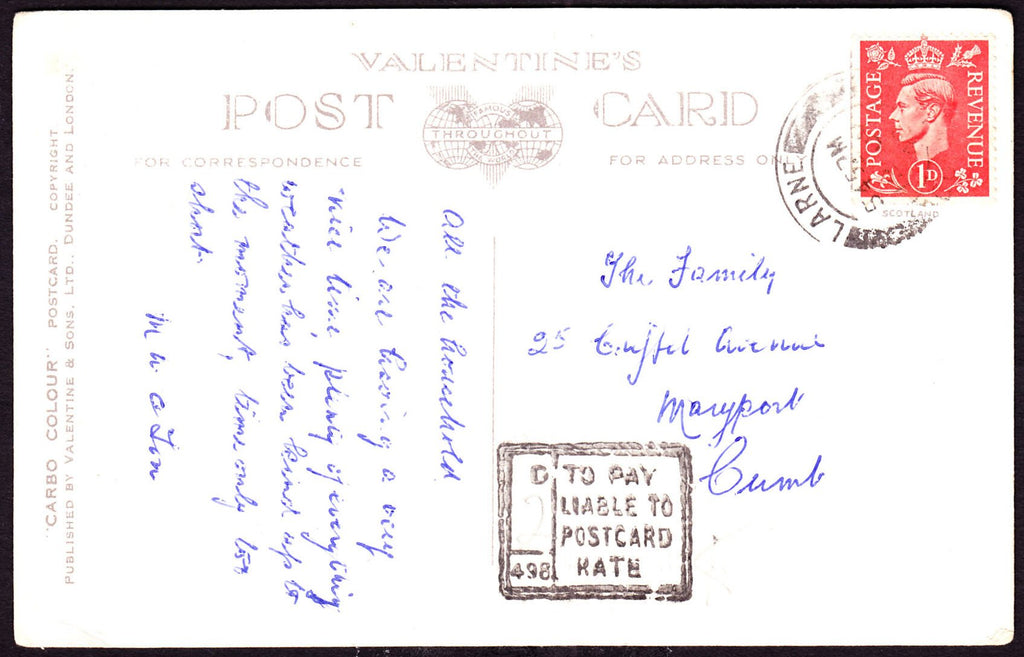 VALENTINE'S
POST CARD
FAMOUS
THROUGHOUT
THE WORLD
FOR CORRESPONDENCE
FOR ADDRESS ON
POSTAGE
REVENUE
1D
SCOTLAND
LARNE
"CARBO COLOUR" POSTCARD. COPYRIGHT
PUBLISHED BY VALENTINE & SONS, LTD., DUNDEE AND LONDON.
All the household
We are having a very
nice time, plenty of everything
weather has been kind up to
the moment, time only too
short.
The Family
25 Avenue
Maryport
Cumb
D
2
498
TO PAY
LIABLE TO
POSTCARD
RATE